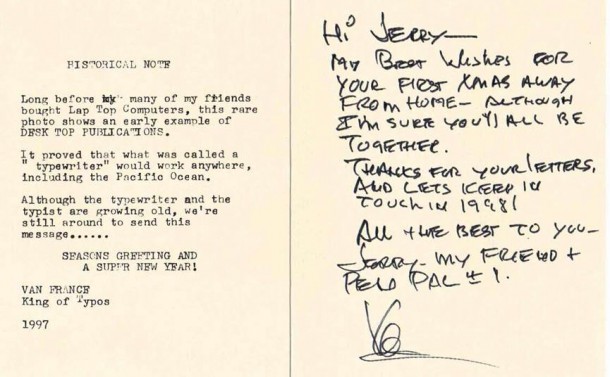 HISTORICAL NOTE
Long before my many of my friends
bought Lap Top Computers, this rare
photo shows an early example of
DESK TOP PUBLICATIONS.
It proved that what was called a
" typewriter" would work anywhere,
including the Pacific Ocean.
Although the typewriter and the
typist are growing old, we're
still around to send this
message......
SEASONS GREETING AND
A SUPER NEW YEAR!
VAN FRANCE
King of Typos
1997
Hi JERRY—
MY BEST WISHES FOR
YOUR FIRST XMAS AWAY
FROM HOME— ALTHOUGH
I'M SURE YOU'LL ALL BE
TOGETHER.
THANKS FOR YOUR LETTERS,
AND LETS KEEP IN
TOUCH IN 1998!
ALL THE BEST TO YOU—
JERRY— MY FRIEND +
PEN PAL # 1.